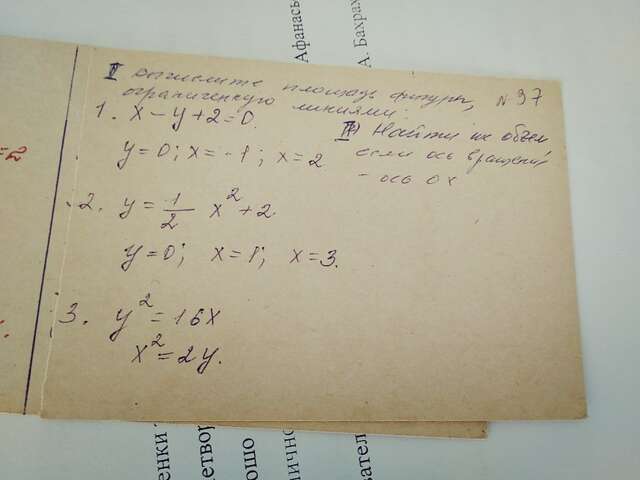 II Вычислите площадь фигуры,
ограниченную линиями:
№ 97
1. x - y + 2 = 0
y = 0; x = -1; x = 2
III) Найти их объем
если ось вращения
- ось OX
2. y = 1/2 x² + 2.
y = 0; x = 1; x = 3.
3. y² = 16x
x² = 2y.
=2
Афанась
А. Бахрах
енки
летвор
ошо
нично
вател